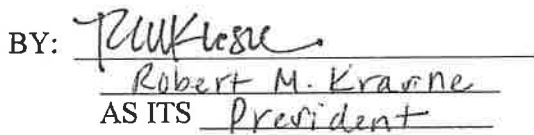 BY:
Robert M. Kravne
AS ITS President